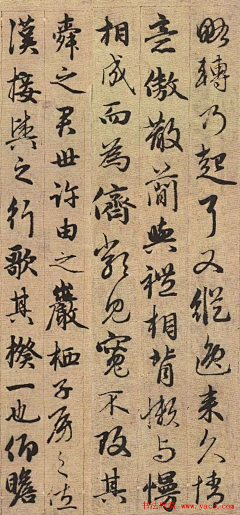 略轉乃起耳又縱逸来久情
意傲散簡與禮相背懶与慢
相成而為儕類見寬不攻其
舜之君世許由之巖栖子房之佐
漢接輿之行歌其揆一也仰瞻